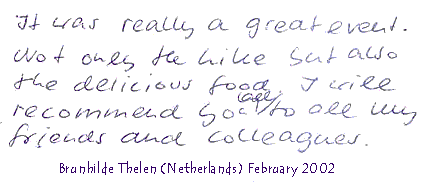 It was really a great event.
Not only the hike but also
the delicious food. I will
recommend to all my
friends and colleagues.
Brunhilde Thelen (Netherlands) February 2002